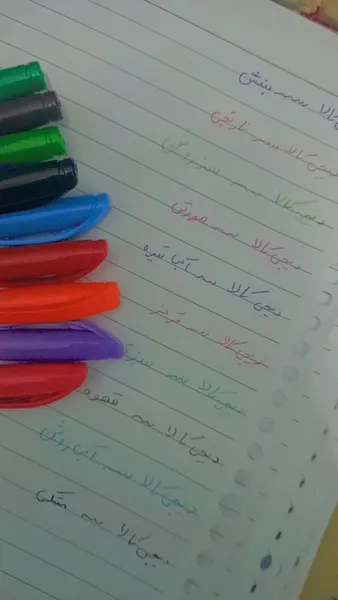 دیجی کالا سه بنفش
دیجی کالا سه نارنجی
دیجی کالا سه سبز روشن
دیجی کالا سه صورتی
دیجی کالا سه آبی تیره
دیجی کالا سه قرمز
دیجی کالا سه سبز
دیجی کالا سه قهوه
دیجی کالا سه آبی روشن
دیجی کالا سه مشکی